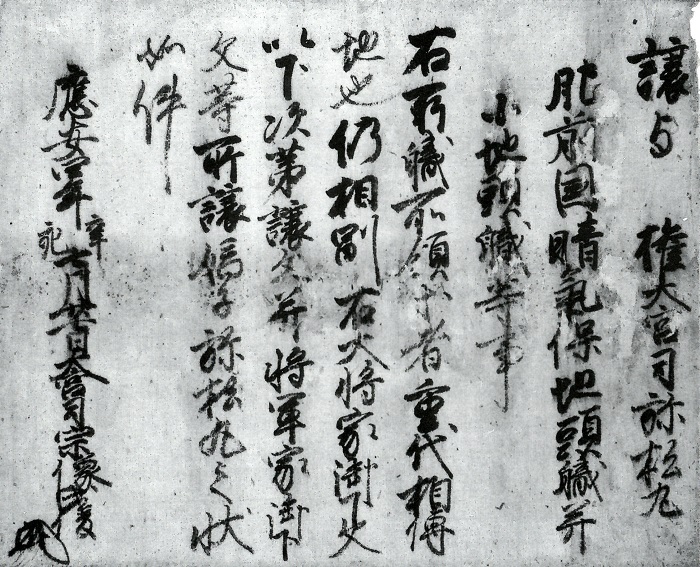 譲与　権大宮司弥松丸
肥前国晴氣保地頭職并
小地頭職等事
右両職所領等者重代相傳
地也仍相副右大将家御下文
以下次第譲文并将軍家御下
文等所譲嫡子弥松丸之状
如件
應安四年辛亥七月廿日大宮司宗像